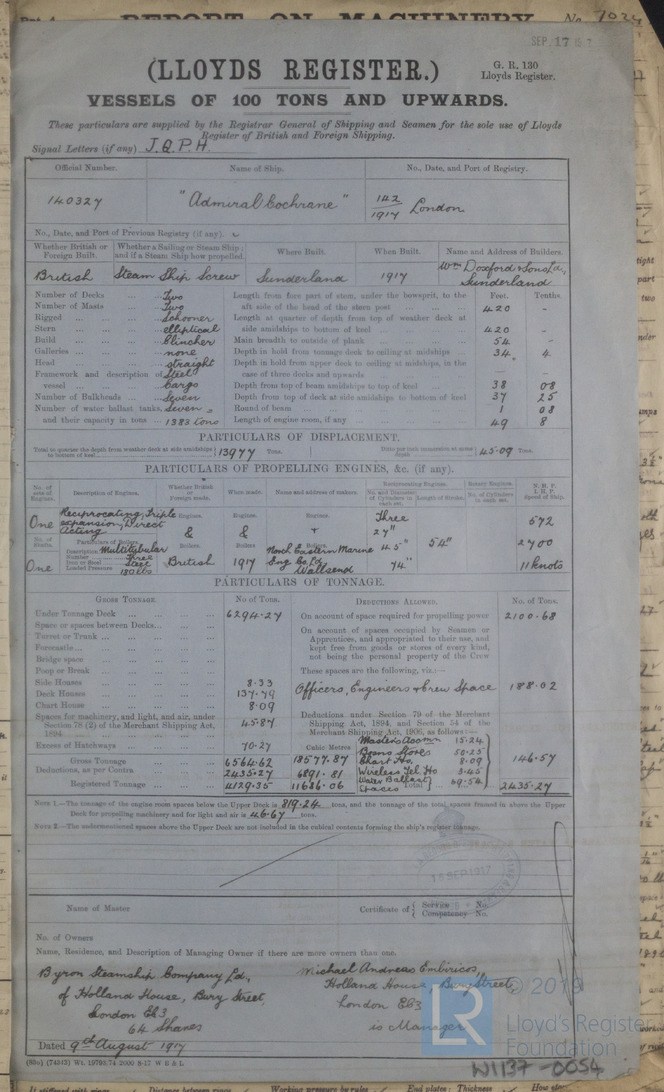 REPORT ON MACHINERY
No.
SEP. 17 191
G. R. 130
Lloyds Register.
(LLOYDS REGISTER.)
VESSELS OF 100 TONS AND UPWARDS.
These particulars are supplied by the Registrar General of Shipping and Seamen for the sole use of Lloyds
Register of British and Foreign Shipping.
Signal Letters (if any) J.Q.P.H
Official Number. Name of Ship. No., Date, and Port of Registry.
140327 "Admiral Cochrane" 142/1917 London
No., Date, and Port of Previous Registry (if any).
Whether British or Foreign Built. Whether a Sailing or Steam Ship; and if a Steam Ship how propelled. Where Built. When Built. Name and Address of Builders.
British Steam Ship Screw Sunderland 1917 Wm Doxford & Sons Ld, Sunderland
Feet. Tenths.
Number of Decks ... Two
Number of Masts ... Two
Rigged ... Schooner
Stern ... elliptical
Build ... Clincher
Galleries ... none
Head ... straight
Framework and description of vessel ... Steel Cargo
Number of Bulkheads ... Seven
Number of water ballast tanks, Seven
and their capacity in tons ... 1383 tons
Length from fore part of stem, under the bowsprit, to the aft side of the head of the stern post 420 -
Length at quarter of depth from top of weather deck at side amidships to bottom of keel 420 -
Main breadth to outside of plank 54 -
Depth in hold from tonnage deck to ceiling at midships 34 4
Depth in hold from upper deck to ceiling at midships, in the case of three decks and upwards - -
Depth from top of beam amidships to top of keel 38 08
Depth from top of deck at side amidships to bottom of keel 37 25
Round of beam 1 08
Length of engine room, if any 49 8
PARTICULARS OF DISPLACEMENT.
Total to quarter the depth from weather deck at side amidships to bottom of keel 13977 Tons. Ditto per inch immersion at same depth 45.09 Tons.
PARTICULARS OF PROPELLING ENGINES, &c. (if any).
No. of sets of Engines. Description of Engines. Whether British or Foreign made. When made. Name and address of makers. Reciprocating Engines. No. and Diameter of Cylinders in each set. Length of Stroke. Rotary Engines. No. of Cylinders in each set. N.H.P. I.H.P. Speed of Ship.
One Reciprocating, Triple expansion, Direct Acting Engines. & Engines. & Engines. Three 27" 572
No. of Shafts. Particulars of Boilers. Boilers Boilers Boilers
One Description Multitubular British 1917 North Eastern Marine Eng Co Ld Wallsend 45" 54" 2700
Number Three
Iron or Steel Steel
Loaded Pressure 180 lbs 74" 11 knots
PARTICULARS OF TONNAGE.
GROSS TONNAGE. No. of Tons. DEDUCTIONS ALLOWED. No. of Tons.
Under Tonnage Deck 6294.27
Space or spaces between Decks
Turret or Trunk
Forecastle
Bridge space
Poop or Break
Side Houses 8.33
Deck Houses 137.79
Chart House 8.09
Spaces for machinery, and light, and air, under Section 78 (2) of the Merchant Shipping Act, 1894 45.87
Excess of Hatchways 70.27
Cubic Metres
Gross Tonnage 6564.62 18577.87
Deductions, as per Contra 2435.27 6891.81
Registered Tonnage 4129.35 11686.06
On account of space required for propelling power 2100.68
On account of spaces occupied by Seamen or Apprentices, and appropriated to their use, and kept free from goods or stores of every kind, not being the personal property of the Crew
These spaces are the following, viz.:—
Officers, Engineers & Crew Space 188.02
Deductions under Section 79 of the Merchant Shipping Act, 1894, and Section 54 of the Merchant Shipping Act, 1906, as follows:—
Master's Accmn 15.24
Bosns Stores 50.25
Chart Ho. 8.09
Wireless Tel Ho 3.45
Water Ballast Spaces 69.54
146.57
Total 2435.27
NOTE 1.—The tonnage of the engine room spaces below the Upper Deck is 819.24 tons, and the tonnage of the total spaces framed in above the Upper
Deck for propelling machinery and for light and air is 46.67 tons.
NOTE 2.—The undermentioned spaces above the Upper Deck are not included in the cubical contents forming the ship's register tonnage.
15 SEP 1917
Name of Master Certificate of { Service No.
Competency No.
No. of Owners
Name, Residence, and Description of Managing Owner if there are more owners than one.
Byron Steamship Company Ld,
of Holland House, Bury Street,
London EC3
64 Shares
Michael Andreas Embiricos,
Holland House, Bury Street,
London EC3
is Manager
Dated 9th August 1917
© 2019
LR
Lloyd's Register
Foundation
W1137-0054